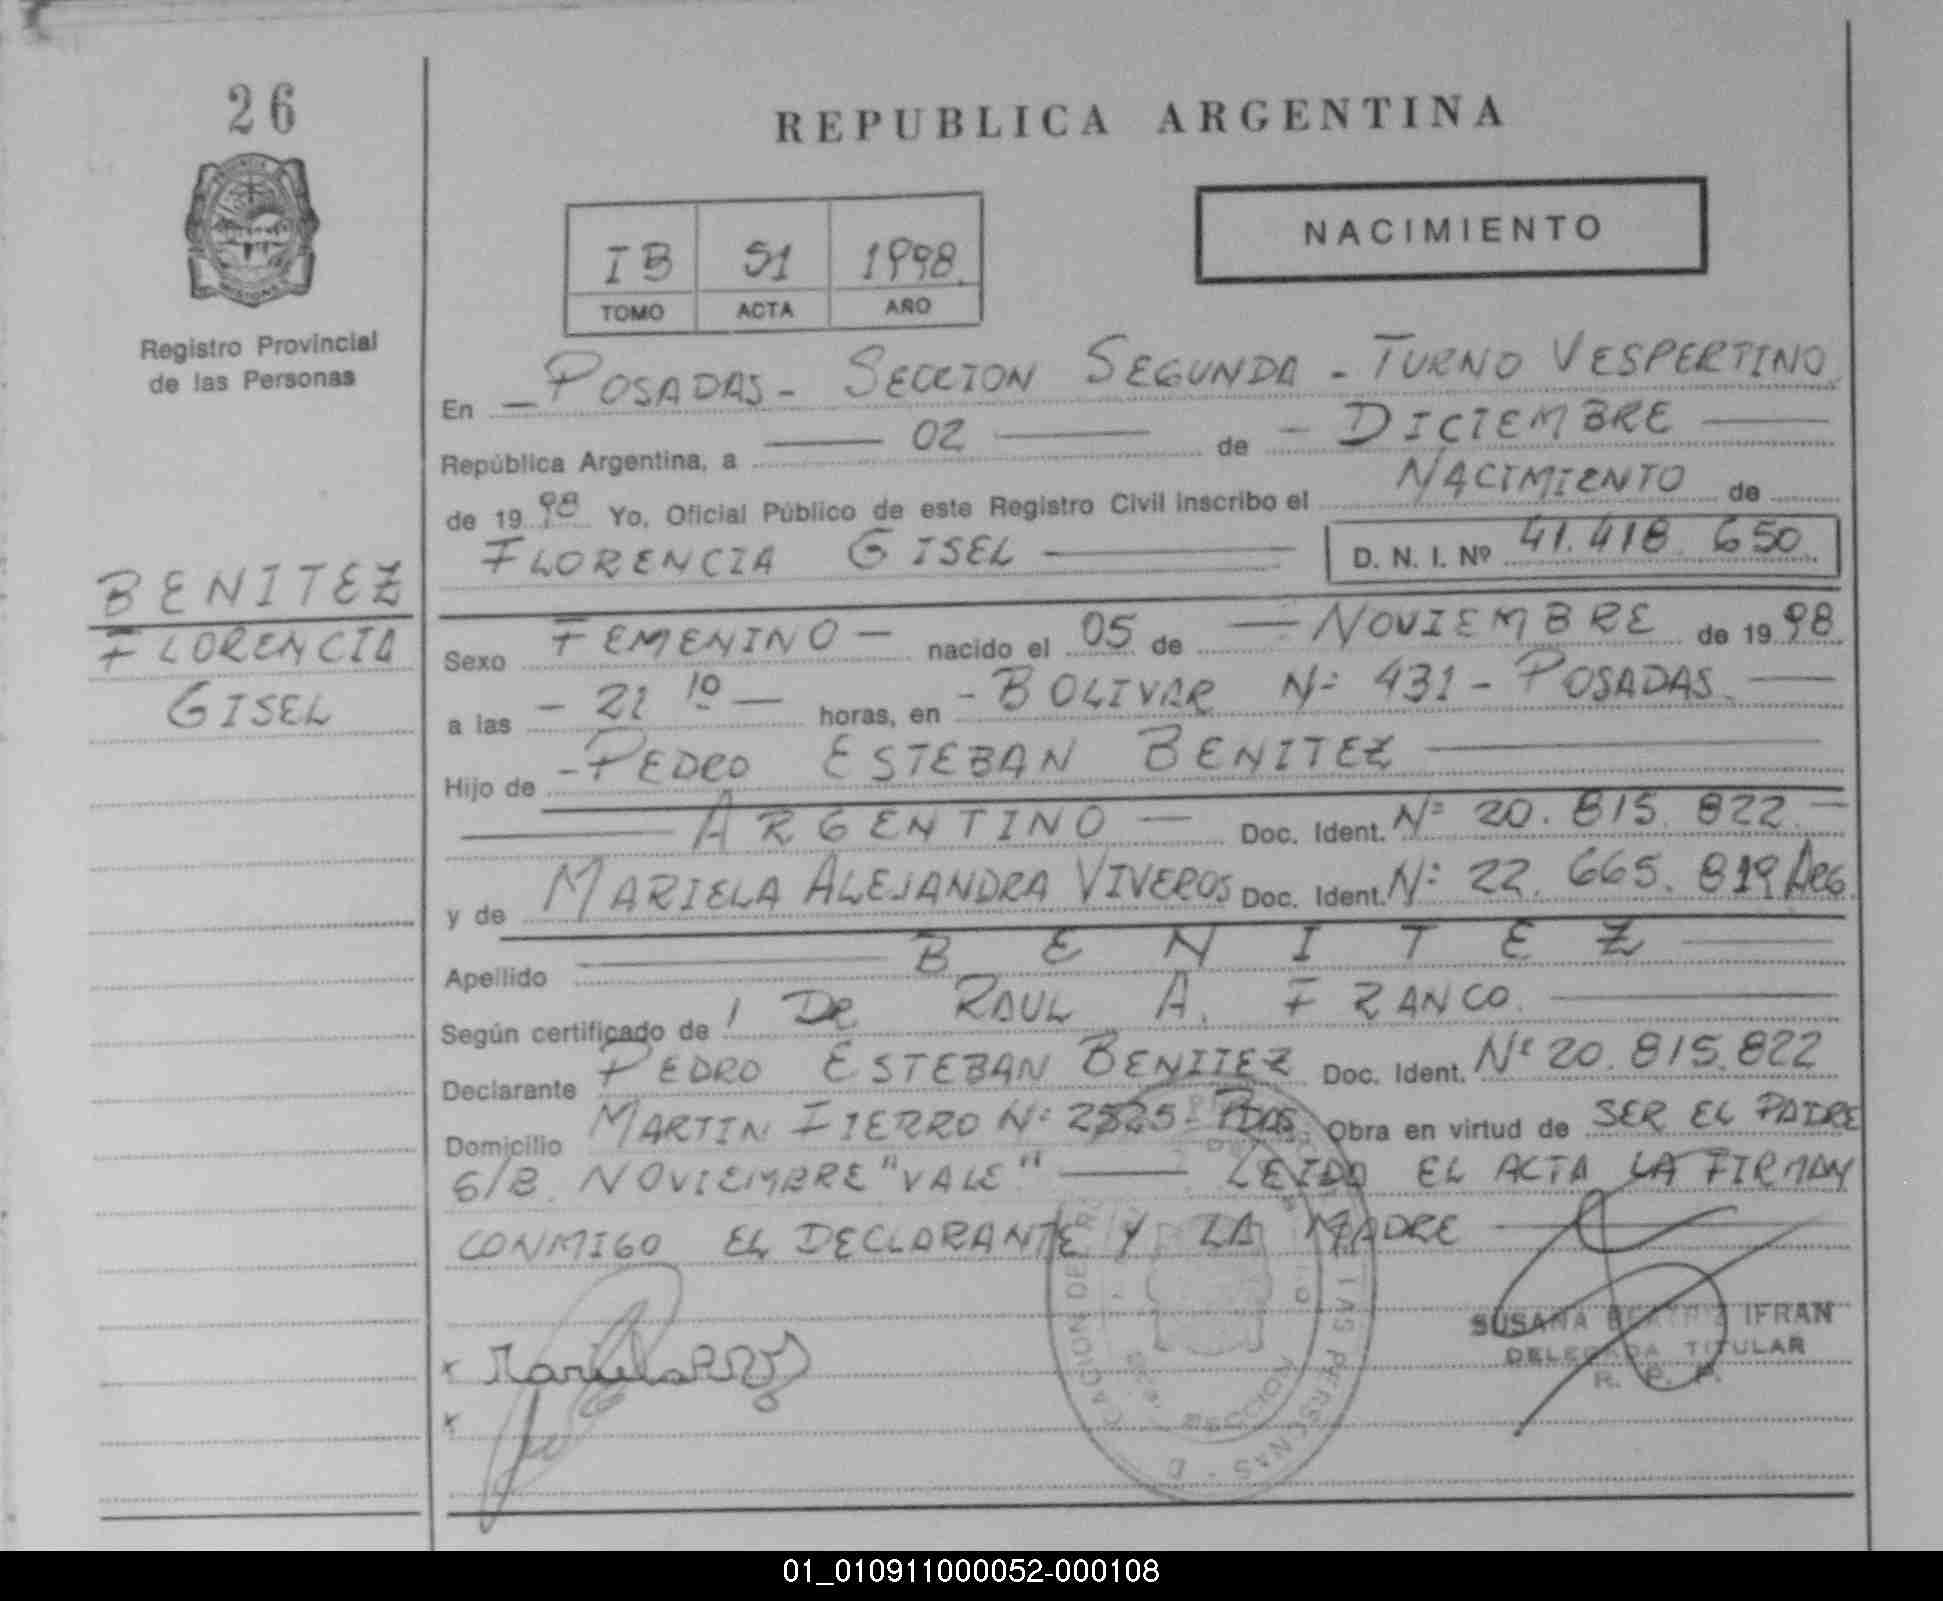 26
REPUBLICA ARGENTINA
NACIMIENTO
IB 51 1998
TOMO ACTA AÑO
Registro Provincial
de las Personas
En - POSADAS - SECCION SEGUNDA - TURNO VESPERTINO
República Argentina, a 02 de - DICIEMBRE
de 1998 Yo, Oficial Público de este Registro Civil inscribo el NACIMIENTO de
FLORENCIA GISEL D. N. I. Nº 41.418.650
BENITEZ
FLORENCIA
GISEL
Sexo FEMENINO - nacido el 05 de - NOVIEMBRE de 1998
a las - 21 10 - horas, en - BOLIVAR Nº 431 - POSADAS
Hijo de - PEDRO ESTEBAN BENITEZ
ARGENTINO - Doc. Ident. Nº 20.815.822 -
y de MARIELA ALEJANDRA VIVEROS Doc. Ident. Nº 22.665.819 ARG.
Apellido BENITEZ
Según certificado de DR RAUL A. FRANCO.
Declarante PEDRO ESTEBAN BENITEZ Doc. Ident. Nº 20.815.822
Domicilio MARTIN FIERRO Nº 2525 - PDAS Obra en virtud de SER EL PADRE
S/B. NOVIEMBRE "VALE" LEIDO EL ACTA LA FIRMAN
CONMIGO EL DECLARANTE Y LA MADRE
SUSANA BEATRIZ IFRAN
DELEGADA TITULAR
R. P. P.
01_010911000052-000108